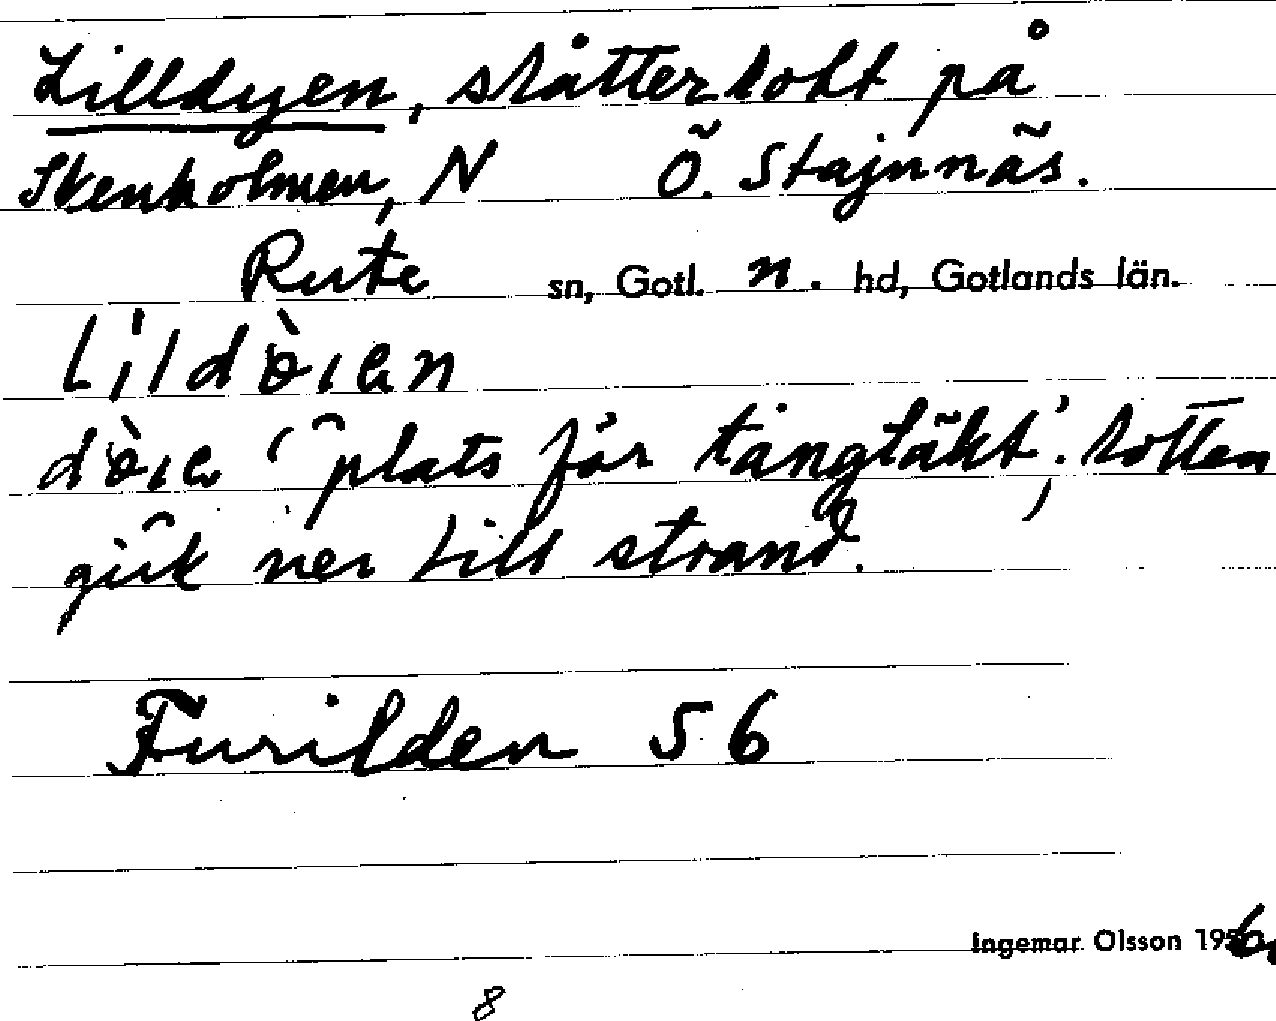 Lilldyen, slåtterlott på
Skenholmen, N Ö. Stajnnäs.
Rute sn, Gotl. n. hd, Gotlands län.
plats för tångtäkt'; lotten
gick ner till strand.
Furilden 56
Ingemar Olsson 195
8